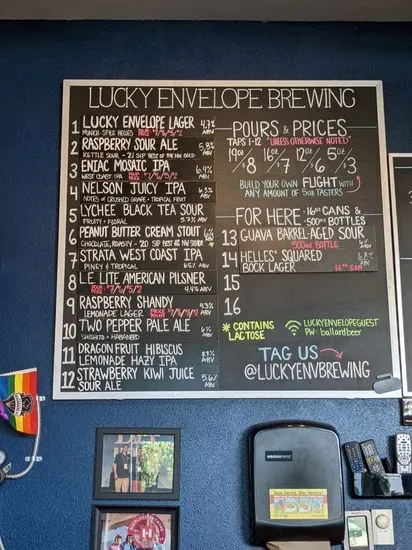 LUCKY ENVELOPE BREWING
1 LUCKY ENVELOPE LAGER 4.7%
MUNICH-STYLE HELLES $7/$6/$5/$2 ABV
2 RASPBERRY SOUR ALE 5.8%
KETTLE SOUR - '21 SIP BEST OF THE NW GOLD ABV
3 ENIAC MOSAIC IPA 6.4%
WEST COAST IPA $7/$6/$5/$2 ABV
4 NELSON JUICY IPA 6.3%
NOTES OF CRUSHED GRAPE + TROPICAL FRUIT ABV
5 LYCHEE BLACK TEA SOUR
FRUITY + FLORAL 5.7% ABV
6 PEANUT BUTTER CREAM STOUT 6%
CHOCOLATE, ROASTY - '20 SIP BEST OF NW SILVER ABV
7 STRATA WEST COAST IPA
PINEY & TROPICAL ABV
8 LE LITE AMERICAN PILSNER
$7/$6/$5/$2 4.4% ABV
9 RASPBERRY SHANDY 4.3%
LEMONADE LAGER PRICE POINT $7/$6/$5/$2 ABV
10 TWO PEPPER PALE ALE 6%
SHISHITO + HABANERO ABV
11 DRAGON FRUIT HIBISCUS
LEMONADE HAZY IPA ABV
12 STRAWBERRY KIWI JUICE 5.6%
SOUR ALE ABV
POURS & PRICES
TAPS 1-12 "UNLESS OTHERWISE NOTED"
19oz 16oz 12oz 5oz
/$8 /$7 /$6 /$3
BUILD YOUR OWN FLIGHT WITH
ANY AMOUNT OF 5oz TASTERS
FOR HERE: 16oz CANS & 500ml BOTTLES
13 GUAVA BARREL-AGED SOUR
500ml BOTTLE ABV
14 HELLES' SQUARED
BOCK LAGER 16oz CAN ABV
15
16
* CONTAINS
LACTOSE
LUCKYENVELOPEGUEST
PW: ballardbeer
TAG US
@LUCKYENVBREWING
H